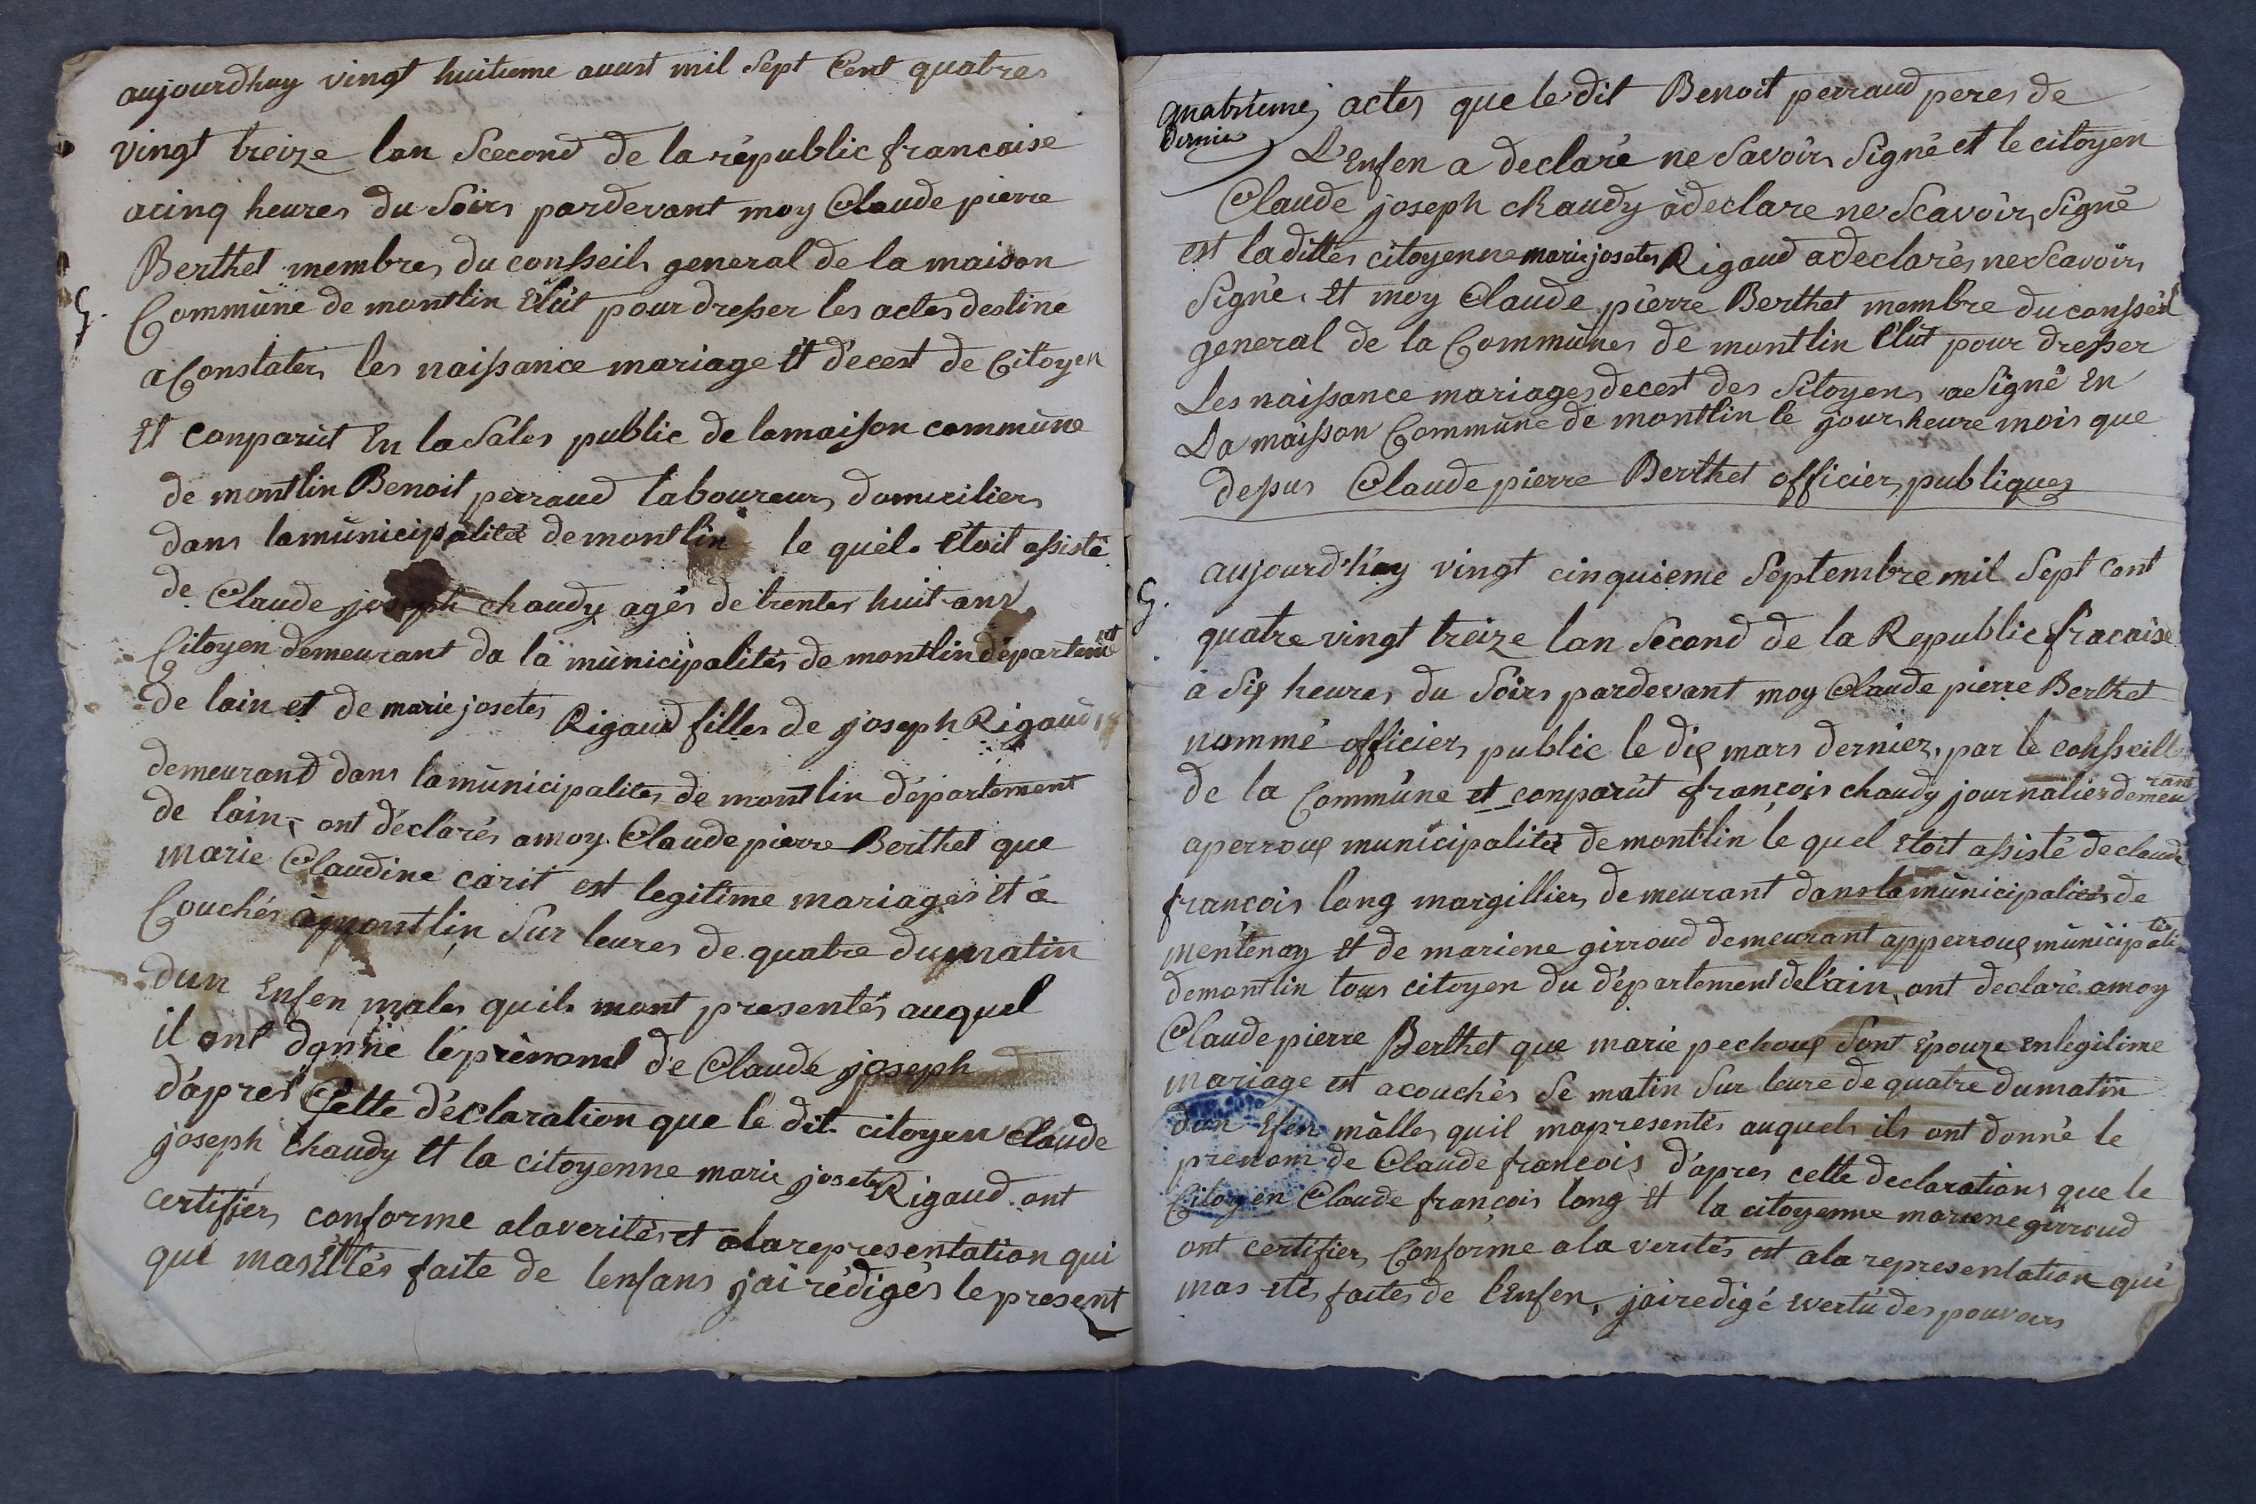 aujourdhuy vingt huitieme auust mil Sept Cent quatres
vingt treize lan Scecond de la républic francaise
acinq heures du Soirs pardevant moy Claude pierre
Berthet membres du consseils general de la maison
G.
Commune de montlin Elüt pour dresser les actes destine
a Constaters les naissance mariage Et décest de Citoyen
Et conparüt En la Sales public de lamaison commune
de montlin Benoit perraud laboureurs domiciliers
dans lamunicipalitée de montlin le quél. étoit assisté
de Claude joseph chaudy agés de trentes huit ans
Citoyen demeurant da la municipalités de montlin département
de lain et de marie josetes Rigaud filles de joseph Rigaud
demeurand dans lamunicipalites de montlin département
de lain, ont déclarés amoy Claude pierre Berthet que
marie Claudine carit est legitime mariages et à
Couchés à montlin Sur leures de quatre du matin
dun Enfen males quils mont presentés auquel
il ont donné léprénomt de Claude joseph
d'apres Cette déclaration que le dit citoyen Claude
joseph Chaudy Et la citoyenne marie josetes Rigaud ont
certifiers conforme alaverités et alarepresentation qui
qui mas Ettés faite de lenfans jai rédigés le present
quatrieme actes que le dit Benoit perraud peres de
dernier
L'Enfen a declaré ne Savoirs Signé et le citoyen
Claude joseph chaudy à declare ne Scavoirs Signé
est laditte citoyenne marie josetes Rigaud adeclarés ne Scavoirs
Signé. Et moy Claude pierre Berthet membre du consséil
general de la Communes de montlin Elüt pour dresser
Les naissance mariages decest des Sitoyens aSigné En
La maisson Commune de montlin le jour heure mois que
dessus Claude pierre Berthet officiers publiques
aujourd'huy vingt cinquieme Septembre mil Sept cent
G.
quatre vingt treize lan Second de la Republic fracaise
à Six heures du Soirs pardevant moy Claude pierre Berthet
nommé officiers public le dix mars dernier, par le consseill
de la Commune et conparüt françois chaudy journalier demeurant
aperroux municipalité de montlin le quel étoit assisté de claude
françois long margilliers demeurant dans la municipalités de
mentenay Et de mariene girroud demeurant apperroux municipalités
demontlin tous citoyen du département de lain, ont declaré amoy
Claude pierre Berthet que marie pechoux Sont épouze en legitime
mariage est acouchés Se matin Sur leure de quatre dumatin
dun Efen mâlles quil mapresentés auquels ils ont donné le
prenom de Claude françois d'apres cette declarations que le
Citoyen Claude françois long Et la citoyenne mariene girroud
ont certifiers Conforme ala verités est ala representation qui
mas etés faites de l'Enfen, jairedigé evertu des pouvoirs